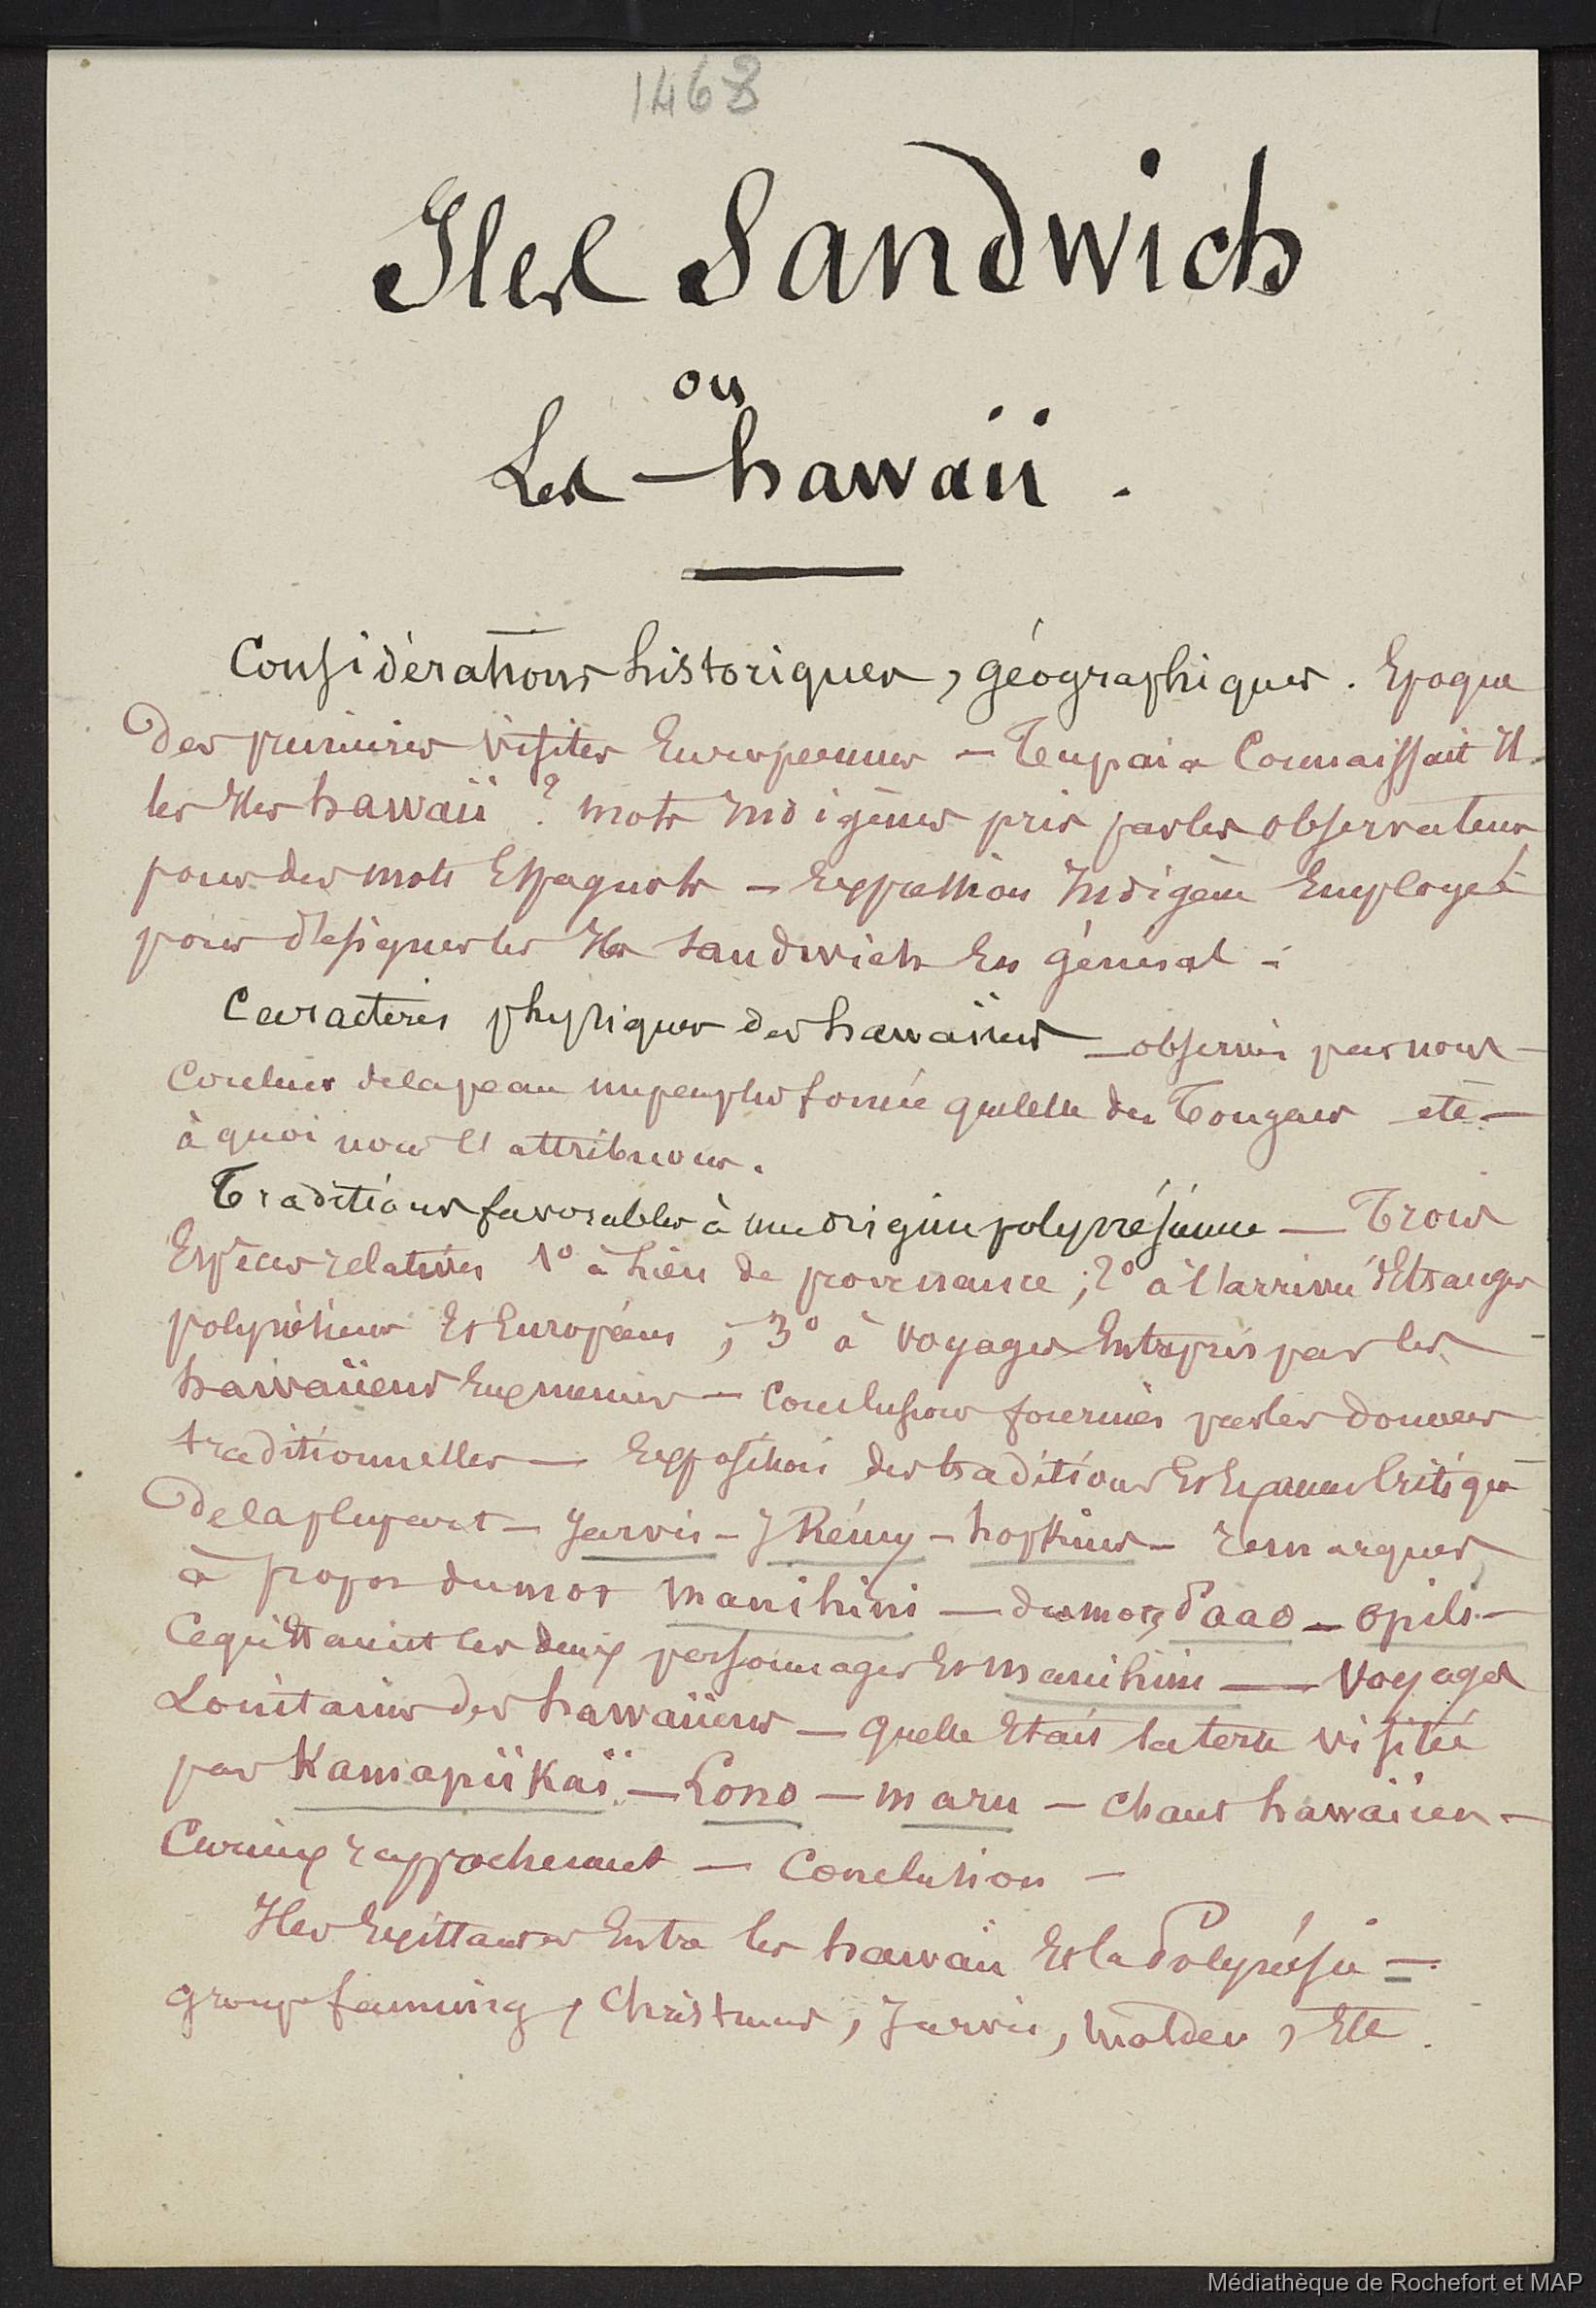 1468
Iles Sandwich
ou
Les hawaii.
Considérations historiques, géographiques. Epoque
Des premieres visites Européennes — Tupaia Connaissait Il
les Iles hawaii ? mots Indigènes pris par les observateurs
pour des mots Espagnols — Expression Indigène Employée
pour désigner les Iles Sandwich En général -
Caractères physiques des hawaïiens — observés par nous —
Couleur de la peau un peu plus foncée que celle des Tongans etc —
à quoi nous l'attribuons.
Traditions favorables à une origine polynésienne — Trois
Espèces relatives 1° à lieu de provenance ; 2° à l'arrivée d'Etrangers
polynésiens Et Européens ; 3° à voyages Entrepris par les
hawaiiens Eux mêmes — Conclusion fournies par les données
traditionnelles — Exposition des traditions Et Examen Critique
De la plupart — Jarvis — J Rémy — hopkins — remarques
à propos du mot manihini — du mot Paao — opili —
Ce qu'Etaient les deux personnages Et manihini — Voyages
Lointains des hawaiiens — quelle Etait la terre visitée
par Kamapiikaï — Lono — maru — Chant hawaiien —
Curieux rapprochement — Conclusion —
Iles Existantes Entre les hawaii Et la Polynésie —
groupe fanning, Christmas, Jarvis, Malden, Etc.
Médiathèque de Rochefort et MAP